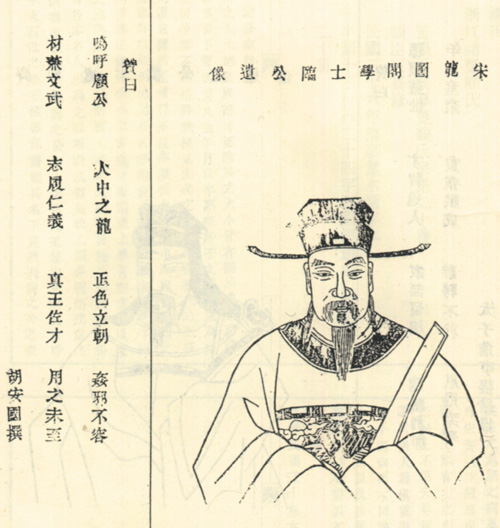 宋龍圖閣學士臨公遺像
贊曰
嗚呼顧公 人中之龍 正色立朝 姦邪不容
材兼文武 志履仁義 真王佐才 用之未至
胡安國撰